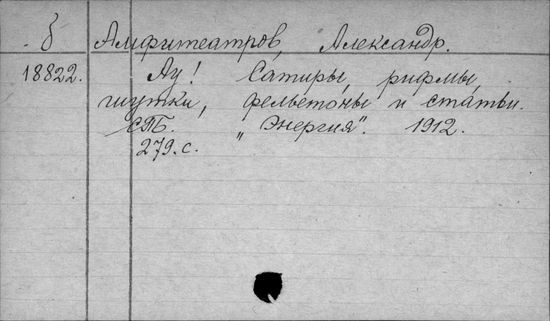 б Амфитеатров, Александр.
18822. Ау! Сатиры, рифмы,
шутки, фельетоны и статьи.
СПБ. „Энергия". 1912.
279. с.